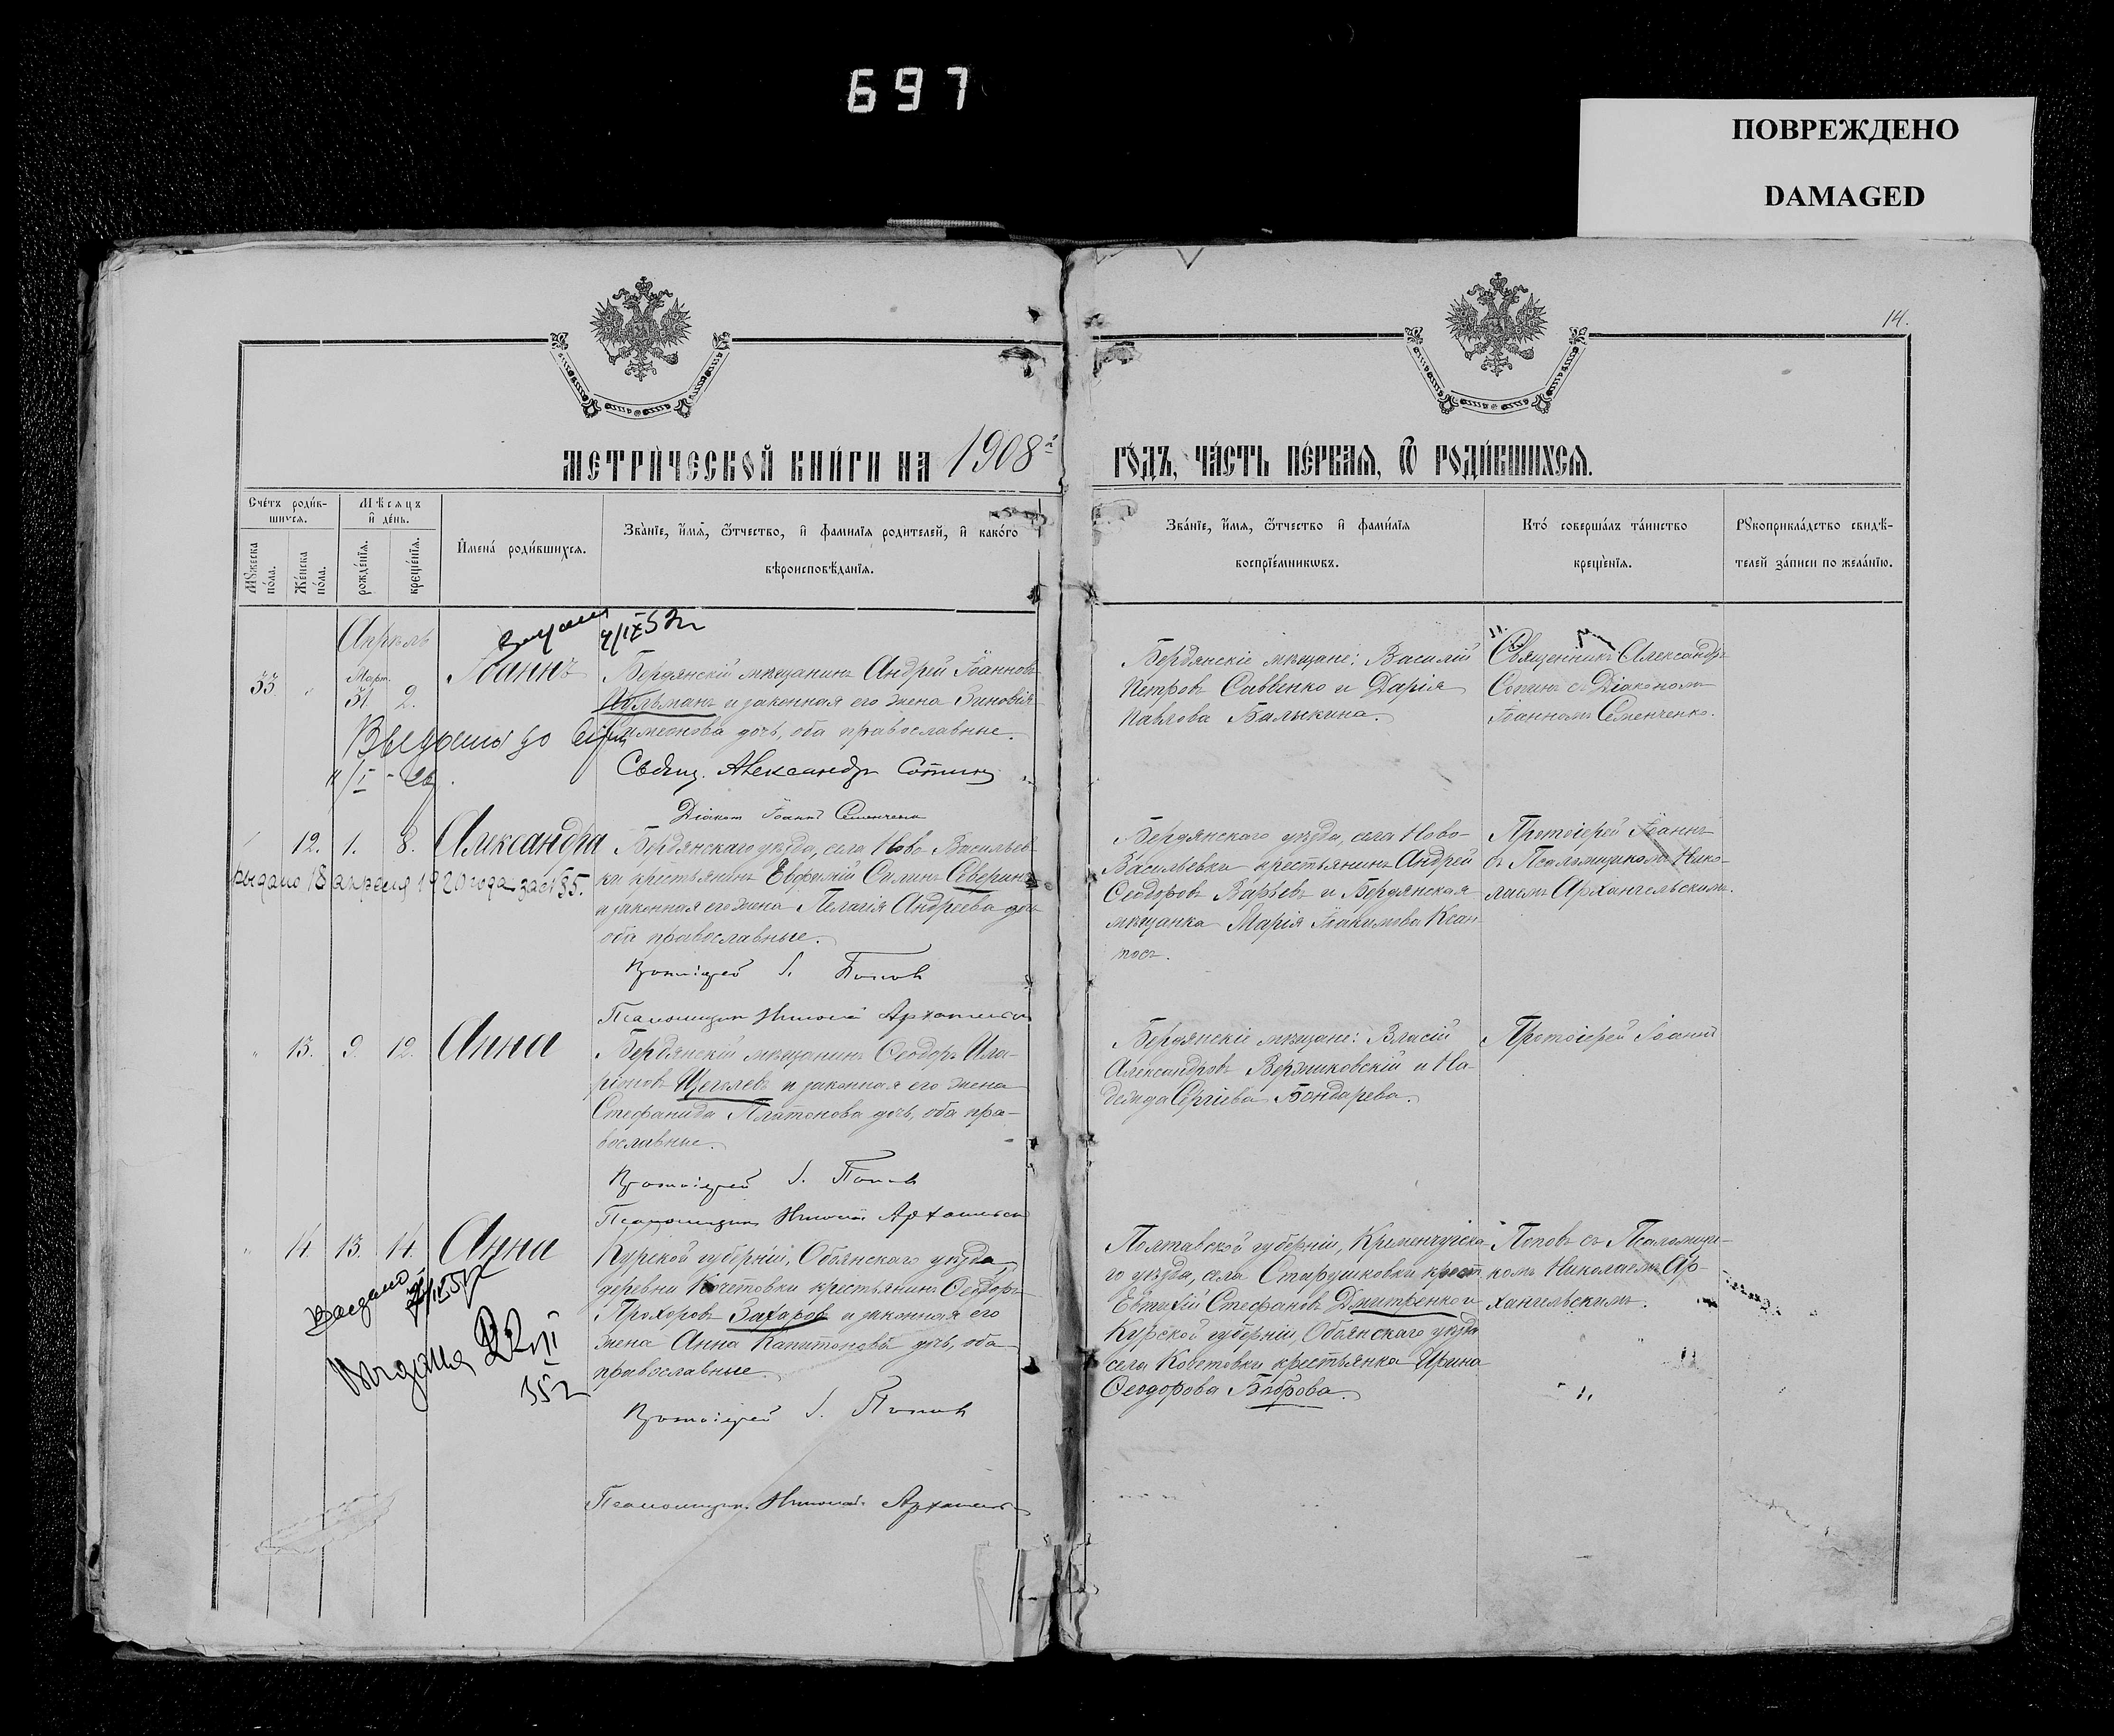 697
ПОВРЕЖДЕНО
DAMAGED
14.
МЕТРИ́ЧЕСКОЙ КНИ́ГИ НА 1908 г.
ГО́ДЪ, ЧА́СТЬ ПЕ́РВАЯ, Ѿ РОДИ́ВШИХСЯ.
Сче́тъ роди́в-
шихся.
Мѣсяцъ
и҆ де́нь.
Мꙋжеска
по́ла.
Же́нска
по́ла.
рожде́нїѧ.
креще́нїѧ.
И҆мена́ роди́вшихся.
Зва́нїе, и҆́мѧ, ѻ҆́тчество, и҆ фами́лїѧ родителей, и҆ како́го
вѣроисповѣ́данїѧ.
Зва́нїе, и҆́мѧ, ѻ҆́тчество и҆ фами́лїѧ
воспрїе́мникωвъ.
Кто́ соверша́лъ та́инство
креще́нїѧ.
Рꙋкоприкла́дство свидѣ́-
телей за́писи по жела́нїю.
Апрѣль
Март.
33.
31. 2.
Іоаннъ
Бердянскій мѣщанинъ Андрей Іоанновъ
и законная его жена Зиновія
Симеонова дочь, оба православные.
Свящ. Александръ Сопинъ
Діакон Іоаннъ Семенченко
Бердянскіе мѣщане: Василій
Петровъ Саввенко и Дарія
Павлова Балыкина.
Священникъ Александръ
Сопинъ съ Діакономъ
Іоанномъ Семенченко.
12. 1. 8. Александра
выдано 18 апреля 1920 года за № 85.
Бердянскаго уѣзда, села Ново-Васильев-
ки крестьянинъ Евфимій Силинъ Северинъ
и законная его жена Пелагія Андреева дочь
оба православные.
Протоіерей І. Попов
Псаломщик Николай Архангельскій
Бердянскаго уѣзда, села Ново-
Васильевки крестьянинъ Андрей
Ѳеодоровъ и Бердянская
мѣщанка Марія Іоакимова Ксан-
тос.
Протоіерей Іоаннъ
съ Псаломщикомъ Нико-
лаемъ Архангельскимъ.
13. 9. 12. Анна
Бердянскій мѣщанинъ Ѳеодоръ Ила-
ріоновъ Щеголевъ и законная его жена
Стефанида Платонова дочь, оба пра-
вославные.
Протоіерей І. Попов
Псаломщик Николай Архангельскій
Бердянскіе мѣщане: Власій
Александровъ Вержиковскій и На-
дежда Сергіева Бондарева.
Протоіерей Іоаннъ
14. 13. 14. Анна
Курской губерніи, Обоянскаго уѣзда,
деревни Кочетовки крестьянинъ Ѳеодоръ
Прохоровъ Захаровъ и законная его
жена Анна Капитонова дочь, оба
православные.
Протоіерей І. Попов
Псаломщик Николай Архангельскій
Полтавской губерніи, Кременчугска-
го уѣзда, села Старушковки крест.
Евтихій Стефановъ Дмитренко и
Курской губерніи, Обоянскаго уѣзда
села Кочетовки крестьянка Ирина
Ѳеодорова Боброва.
Поповъ съ Псаломщи-
комъ Николаемъ Ар-
хангельскимъ.